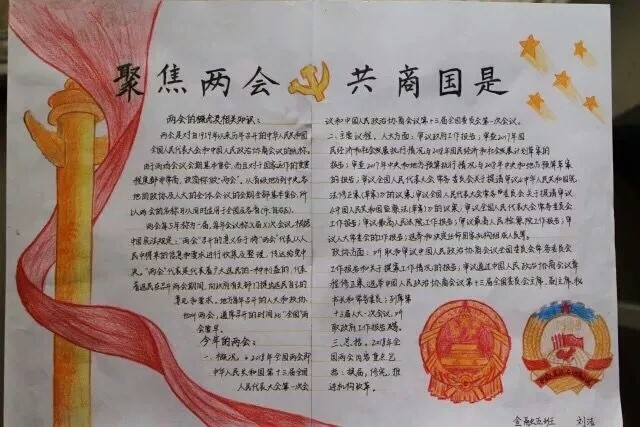 聚焦两会 共商国是
两会的概念及相关知识：
两会是对自1959年以来历年召开的中华人民共和国
全国人民代表大会和中国人民政治协商会议的统称。
由于两场会议会期基本重合，而且对于国家运作的重要
程度都非常高，故简称做“两会”。从省级地方到中央，各
地的政协及人大的全体会议的会期全部基本重合，所
以两会的名称可从同时适用于全国及各省（市、自治区）。
两会每5年称为一届，每年会议称X届X次会议。根据
中国宪法规定：“两会”召开的意义在于将“两会”代表从人
民中得来的信息和要求进行收集及整理，传达给党中
央。“两会”代表是代表着广大选民的一种利益的，代表
着选民在召开两会期间，向政府有关部门提出选民自己的
意见和要求。地方每年召开的人大和政协
也叫两会，通常召开的时间比“全国”两
会要早。
今年的两会：
一、概况。2018年全国两会即
中华人民共和国第十三届全国
人民代表大会第一次会
议和中国人民政治协商会议第十三届全国委员会第一次会议。
二、主要议程。人大方面：审议政府工作报告；审查2017年国
民经济和社会发展计划执行情况与2018年国民经济和社会发展计划草案的
报告；审查2017年中央和地方预算执行情况与2018年中央和地方预算草案
的报告；审议全国人民代表大会常务委员会关于提请审议《中华人民共和国宪
法修正案（草案）》的议案；审议全国人民代表大会常务委员会关于提请审议
《中华人民共和国监察法（草案）》的议案；审议全国人民代表大会常务委员会
工作报告；审议最高人民法院工作报告；审议最高人民检察院工作报告；审
议人大常委会的工作报告；选举和决定任命国家机构组成人员等。
政协方面：听取和审议中国人民政治协商会议全国委员会常务委员会
工作报告和关于提案工作情况的报告；审议通过中国人民政治协商会议章
程修正案；选举中国人民政治协商会议第十三届全国委员会主席、副主席、秘
书长和常务委员；列席第
十三届人大一次会议，听
取政府工作报告及等。
三、总括。2018年全
国两会内容重点包
括：换届，修宪，推
进机构改革。
金融五班 刘洁